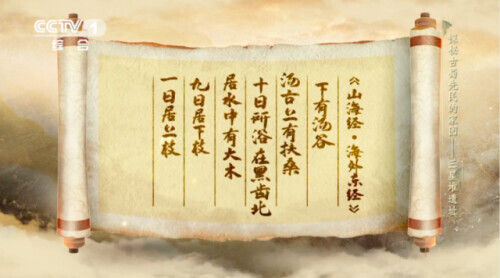 CCTV 1
综合
《山海经·海外东经》
下有汤谷
汤谷上有扶桑
十日所浴在黑齿北
居水中有大木
九日居下枝
一日居上枝
探秘古蜀先民的家园——三星堆遗址